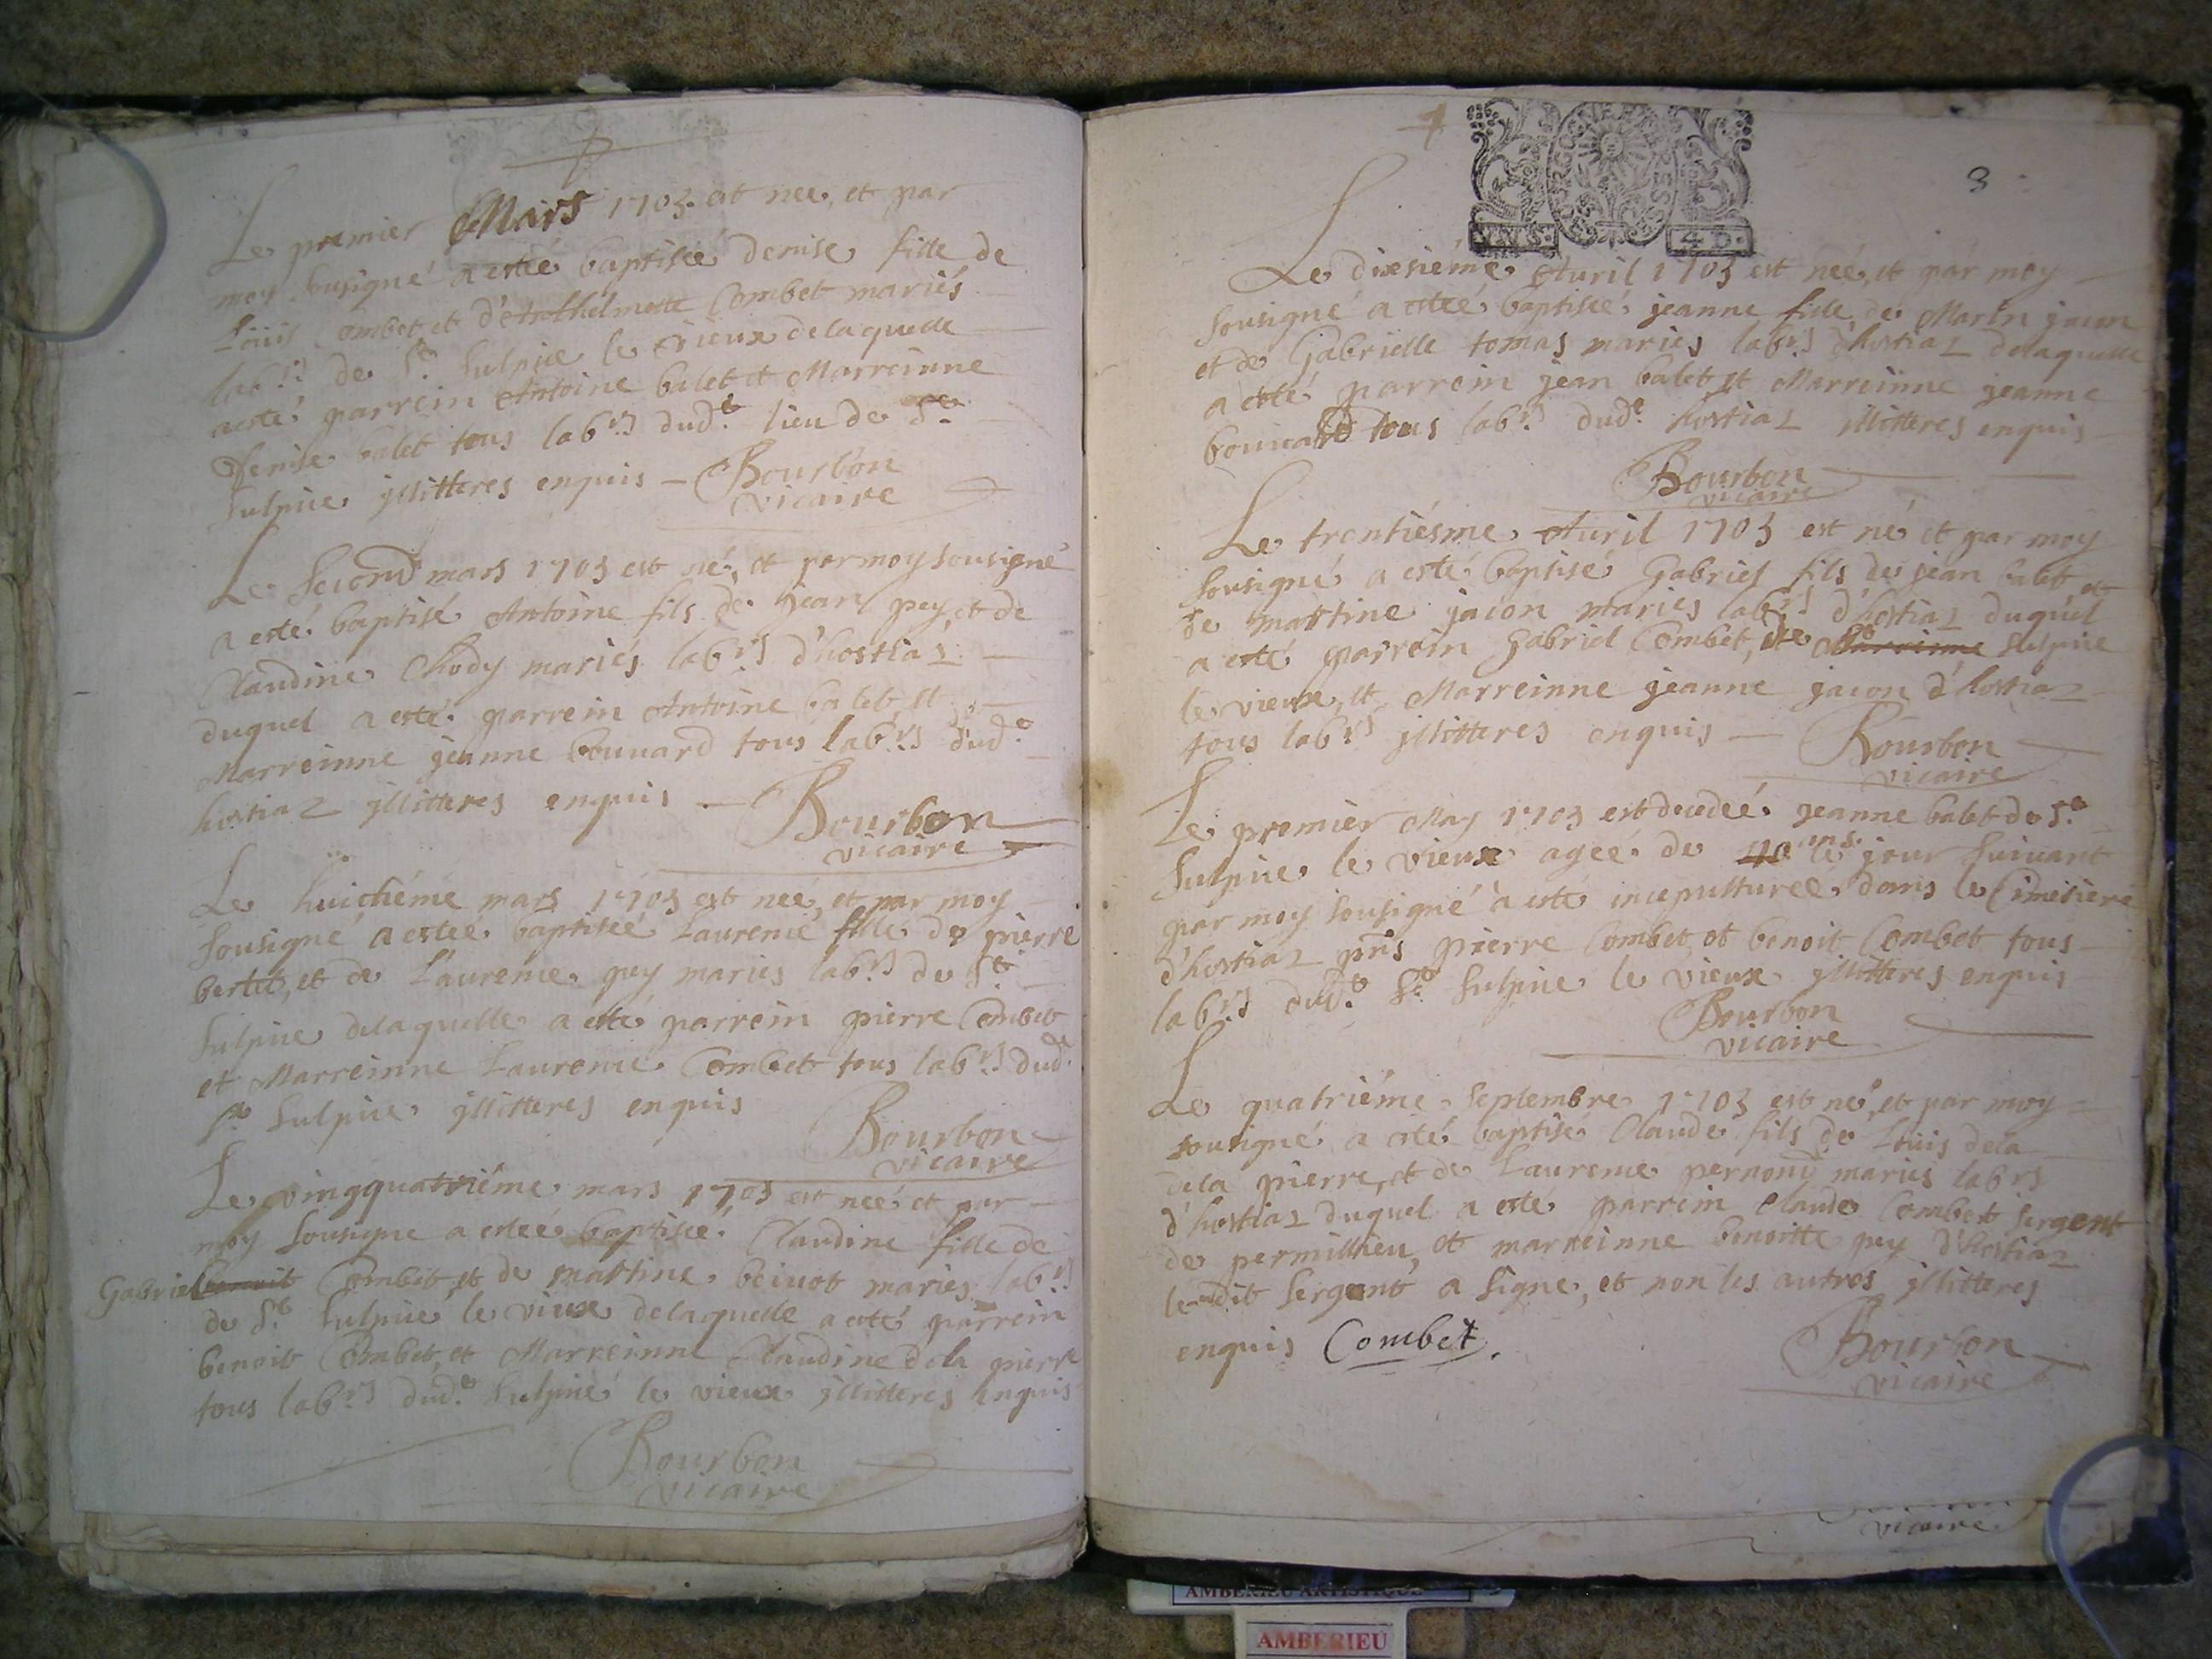 Le premier Mars 1703 est neé, et par
moy sousigné a esteé baptiseé denise fille de
Loüis Combet, et d'Anthelmette Combet mariés
labrs de St Sulpice le vieux delaquelle
a esté parrein Antoine balet et Marreinne
denise balet tous labrs dudt lieu de St
Sulpice jllitteres enquis – Bourbon
vicaire
Le second mars 1703 est né, et par moy sousigné
a esté baptisé Antoine fils de jean pey, et de
Claudine Chody mariés labrs d'hostiaz
duquel a esté parrein Antoine balet, et
Marreinne jeanne bouuard tous labrs dudt
hostiaz jllitteres enquis – Bourbon
vicaire
Le huictiéme mars 1703 est neé, et par moy
sousigné a esteé baptiseé Laurence fille de pierre
bertet, et de Laurence pey mariés labrs de St
Sulpice delaquelle a esté parrein pierre Combet
et Marreinne Laurence Combet tous labrs dudt
St Sulpice jllitteres enquis
Bourbon
vicaire
Le vingquatriéme mars 1703 est neé et par
moy sousigne a esteé baptiseé Claudine fille de
Gabriel benoit Combet, et de martine beiuot mariés labrs
de St Sulpice le vieux delaquelle a esté parrein
benoit Combet, et Marreinne Claudine dela pierre
tous labrs dudt Sulpice le vieux jllitteres enquis
Bourbon
vicaire
3
4 D.
Le dixsiéme Auril 1703 est neé, et par moy
sousigné a esteé baptiseé jeanne fille de Marin jacon
et de Gabrielle tomas mariés labrs d'hostiaz delaquelle
a esté parrein jean balet et Marreinne jeanne
bouuard tous labrs dudt hostiaz jllitteres enquis
Bourbon
vicaire
Le trentiésme Auril 1703 est né et par moy
sousigné a esté baptisé Gabriel fils de jean balet et
de martine jacon mariés labrs d'hostiaz duquel
a esté parrein Gabriel Combet, de Marreinne Sulpice
le vieux, et Marreinne jeanne jacon d'hostiaz
tous labrs jllitteres enquis – Bourbon
vicaire
Le premier May 1703 est decedeé jeanne balet de St
Sulpice le vieux ageé de 10 ans le jour suiuant
par moy sousigné a esté inseputtureé dans le Cimetiere
d'hostiaz pnts pierre Combet et benoit Combet tous
labrs dudt St Sulpice le vieux jllitteres enquis
Bourbon
vicaire
Le quatriéme Septembre 1703 est né, et par moy
sousigné a esté baptisé Claude fils de Loüis dela
dela pierre, et de Laurence pernond mariés labrs
d'hostiaz duquel a esté parrein Claude Combet sergent
de permillieu, et marreinne benoitte pey d'hostiaz
le dit sergent a signe, et non les autres jllitteres
enquis Combet.
Bourbon
vicaire
vicaire
AMBERIEU ARTISTIQUE
AMBERIEU